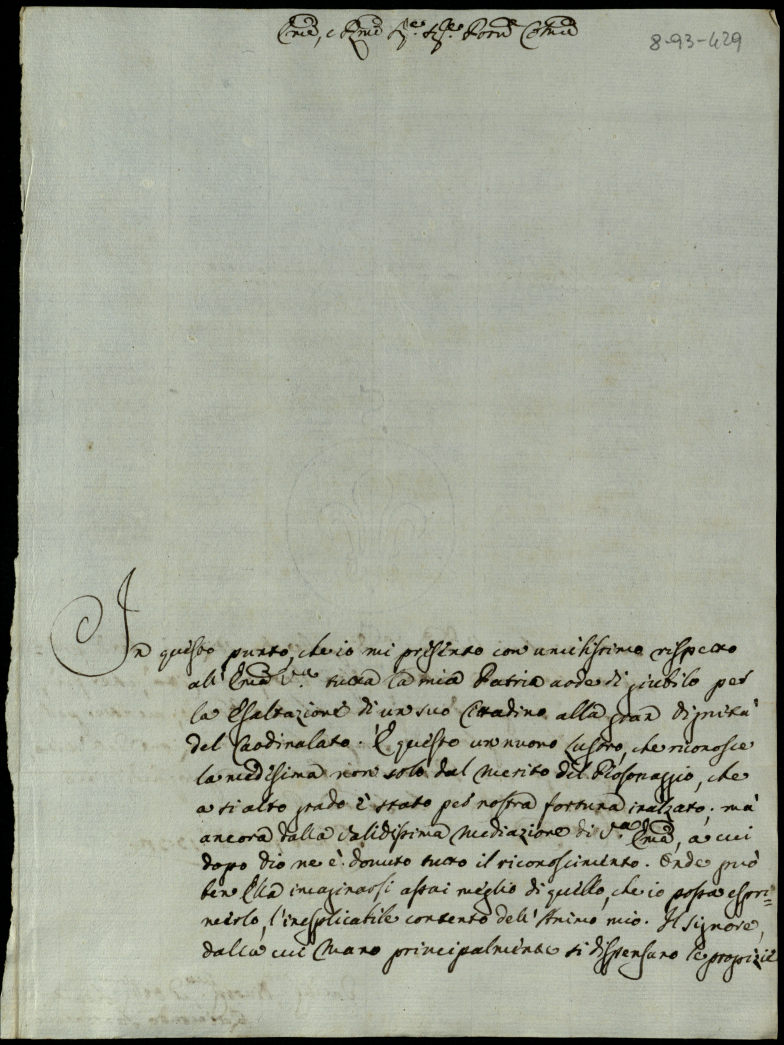 Emo, e Rmo Sig.e Sig.e Pron Colmo
8-93-429
In questo punto, che io mi presento con umilissimo rispetto
all' Emza V.ra tutta la mia Patria arde di giubilo per
la Esaltazione di un suo Cittadino alla gran dignità
del Cardinalato. È questo un nuovo Lustro, che riconosce
la medesima non solo dal Merito del Personaggio, che
a sì alto grado è stato per nostra fortuna inalzato; ma
ancora dalla validissima Mediazione di V.ra Emza, a cui
dopo Dio ne è dovuto tutto il riconoscimento. Onde può
ben Ella imaginarsi assai meglio di quello, che io possa espri=
merlo, l'inesplicabile contento dell'Animo mio. Il Signore,
dalla cui Mano principalmente si dispensano le propizie